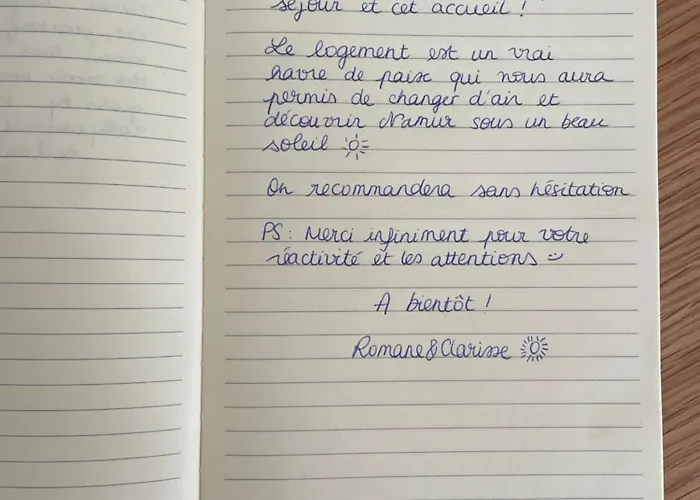 séjour et cet accueil !
Le logement est un vrai
havre de paix qui nous aura
permis de changer d'air et
découvrir Namur sous un beau
soleil
On recommandera sans hésitation
PS : Merci infiniment pour votre
réactivité et les attentions
A bientôt !
Romane & Clarisse